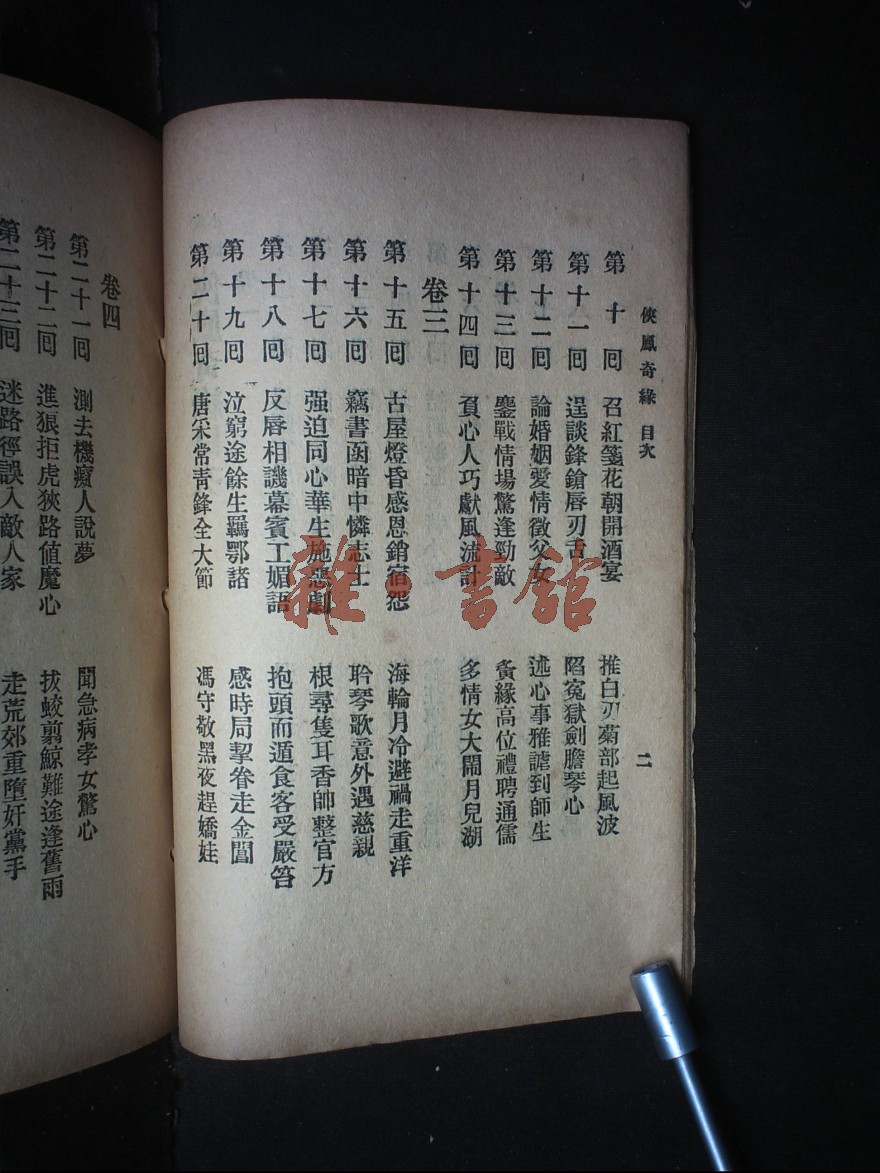 俠鳳奇緣 目次 二
第十回 召紅箋花朝開酒宴 推白刃菊部起風波
第十一回 逞談鋒鎗唇刃舌 陷冤獄劍膽琴心
第十二回 論婚姻愛情徵父女 述心事雅謔到師生
第十三回 鏖戰情場驚逢勁敵 夤緣高位禮聘通儒
第十四回 負心人巧獻風流計 多情女大鬧月兒湖
卷三
第十五回 古屋燈昏感恩銷宿怨 海輪月冷避禍走重洋
第十六回 竊書函暗中憐志士 聆琴歌意外遇慈親
第十七回 强迫同心華生施惡劇 根尋隻耳香帥整官方
第十八回 反唇相譏幕賓工媚語 抱頭而遁食客受嚴笞
第十九回 泣窮途餘生羈鄂諸 感時局挈眷走金閶
第二十回 唐采常青鋒全大節 馮守敬黑夜趕嬌娃
卷四
第二十一回 測去機癡人說夢 聞急病孝女驚心
第二十二回 進狼拒虎狹路値魔心 拔蛟剪鯨難途逢舊雨
第二十三回 迷路徑誤入敵人家 走荒郊重墮奸黨手
雜·書館